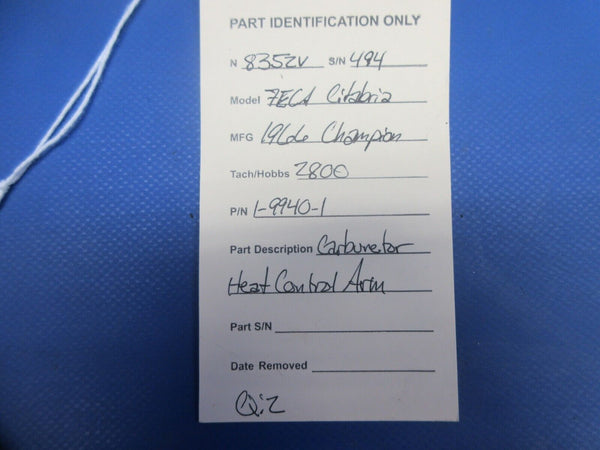 PART IDENTIFICATION ONLY
N 8352V S/N 494
Model 7ECA Citabria
MFG 1966 Champion
Tach/Hobbs 2800
P/N 1-9940-1
Part Description Carburetor
Heat Control Arm
Part S/N
Date Removed
Q:2